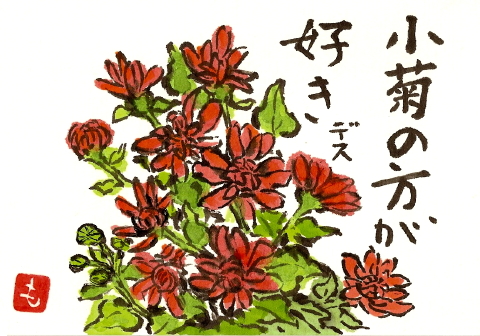 小菊の方が
好きデス
も